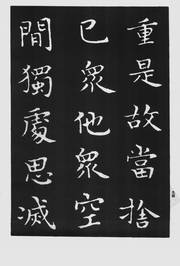 重是故當捨
已眾他眾空
閒獨處思滅